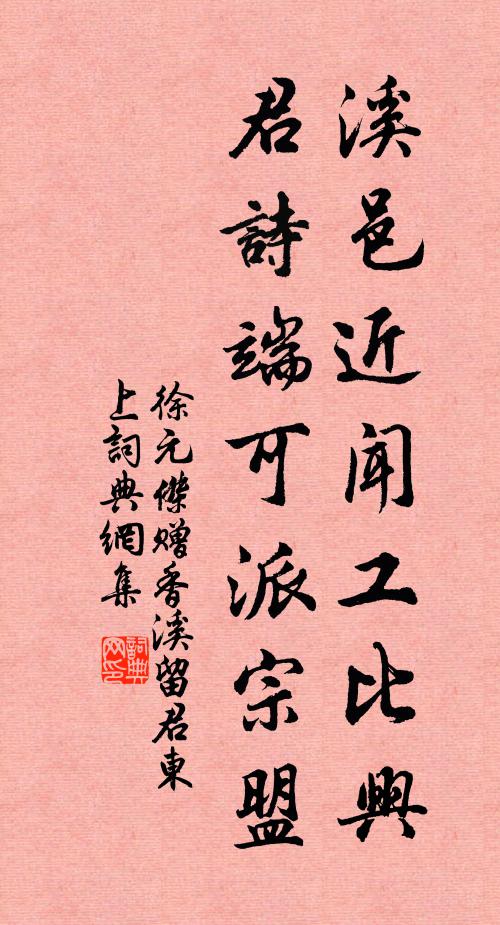 溪邑近闻工比興
君詩端可派宗盟
徐元傑赠香溪留君東
上詞典網集
詞典
网印